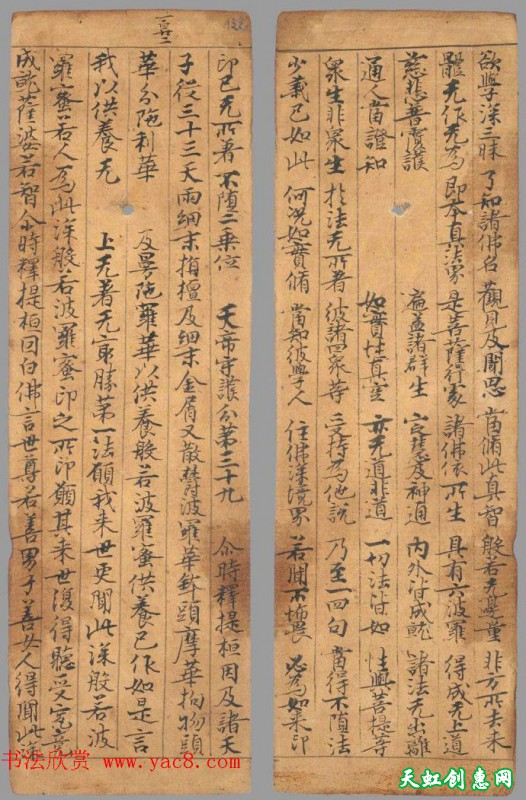 欲學深三昧 了知諸佛名 觀見及聞思 當脩此真智 般若无等量 非方所去來
體无作无為 即本真法界 是菩薩行家 諸佛依所生 具有六波羅 得成无上道
慈悲普實護 遍益諸群生 定慧及神通 內外皆成就 諸法无出離
通人當證知 如實性真空 亦无道非道 一切法皆如 性與菩提等
衆生非衆生 於法无所著 彼諸四眾等 受持為他說 乃至一四句 當得不墮法
少義已如此 何況如實脩 當知彼學人 住佛深境界 若聞不怖畏 必為如來印
印已无所著 不墮二乘位 天帝守護分第三十九 尒時釋提桓因及諸天
子從三十三天雨細末栴檀及細末金屑又散欝波羅華鉢頭摩華拘物頭
華分陁利華 及曼陁羅華以供養般若波羅蜜供養已作如是言
我以供養无 上无著无最勝第一法願我未世更聞此深般若波
羅蜜若人為此深般若波羅蜜印之所印願其未世復得聽受究竟
成就薩婆若智尒時釋提桓因白佛言世尊若善男子善女人得聞此深
书法欣赏 www.yac8.com
天虹创意网